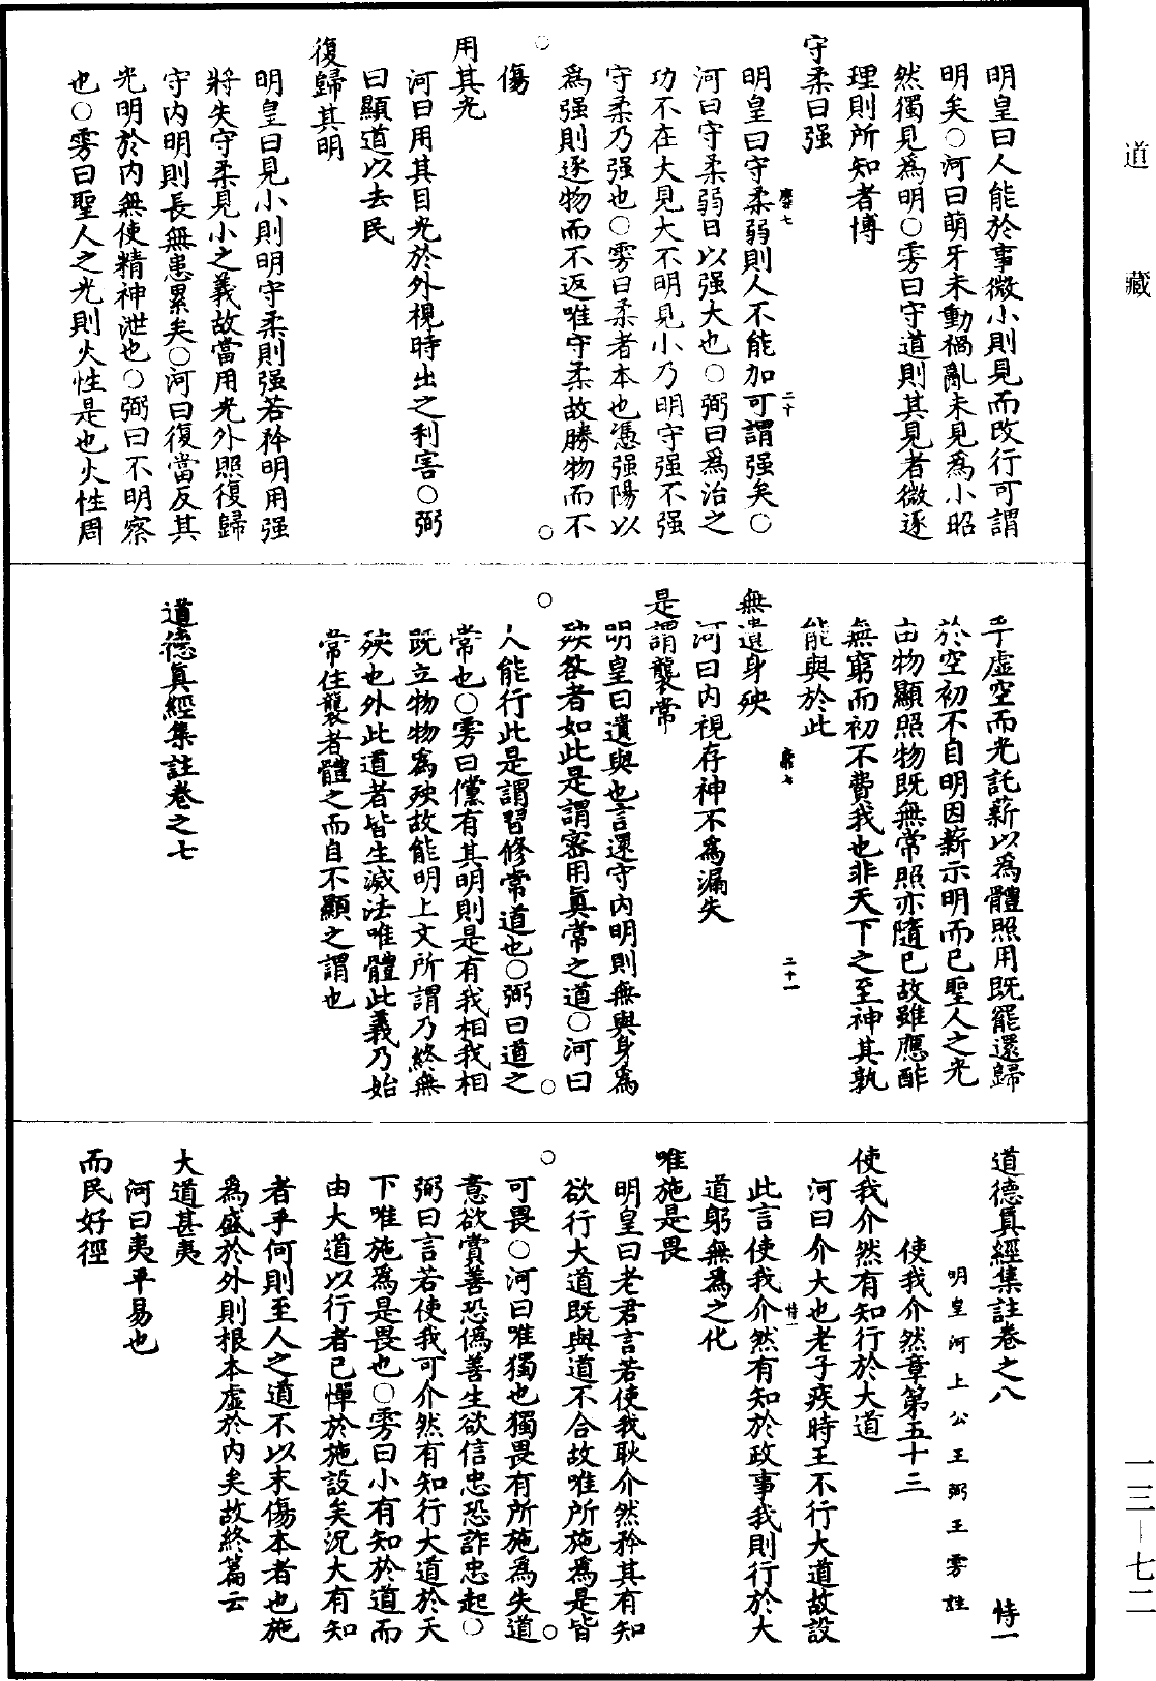 道藏
明皇曰人能於事微小則見而改行可謂
明矣○河曰萌牙未動禍亂未見爲小昭
然獨見爲明○雱曰守道則其見者微逐
理則所知者博
守柔曰强
明皇曰守柔弱則人不能加可謂强矣○
河曰守柔弱日以强大也○弼曰爲治之
功不在大見大不明見小乃明守强不强
守柔乃强也○雱曰柔者本也憑强陽以
爲强則逐物而不返唯守柔故勝物而不
傷
用其光
河曰用其目光於外視時出之利害○弼
曰顯道以去民
復歸其明
明皇曰見小則明守柔則强若矜明用强
將失守柔見小之義故當用光外照復歸
守內明則長無患累矣○河曰復當反其
光明於內無使精神泄也○弼曰不明察
也○雱曰聖人之光則火性是也火性周
乎虛空而光託薪以爲體照用旣罷還歸
於空初不自明因薪示明而已聖人之光
由物顯照物旣無常照亦隨已故雖應酢
無窮而初不費我也非天下之至神其孰
能與於此
無遺身殃
河曰內視存神不爲漏失
是謂襲常
明皇曰遺與也言還守內明則無與身爲
殃咎者如此是謂密用眞常之道○河曰
人能行此是謂習修常道也○弼曰道之
常也○雱曰儻有其明則是有我相我相
旣立物物爲殃故能明上文所謂乃終無
殃也外此道者皆生滅法唯體此義乃始
常住襲者體之而自不顯之謂也
道德眞經集註卷之七
道德眞經集註卷之八 恃一
明皇河上公王弼王雱註
使我介然章第五十三
使我介然有知行於大道
河曰介大也老子疾時王不行大道故設
此言使我介然有知於政事我則行於大
道躬無爲之化
唯施是畏
明皇曰老君言若使我耿介然矜其有知
欲行大道旣與道不合故唯所施爲是皆
可畏○河曰唯獨也獨畏有所施爲失道
意欲賞善恐僞善生欲信忠恐詐忠起○
弼曰言若使我可介然有知行大道於天
下唯施爲是畏也○雱曰小有知於道而
由大道以行者已憚於施設矣況大有知
者乎何則至人之道不以末傷本者也施
爲盛於外則根本虛於內矣故終篇云
大道甚夷
河曰夷平易也
而民好徑
一三－七二